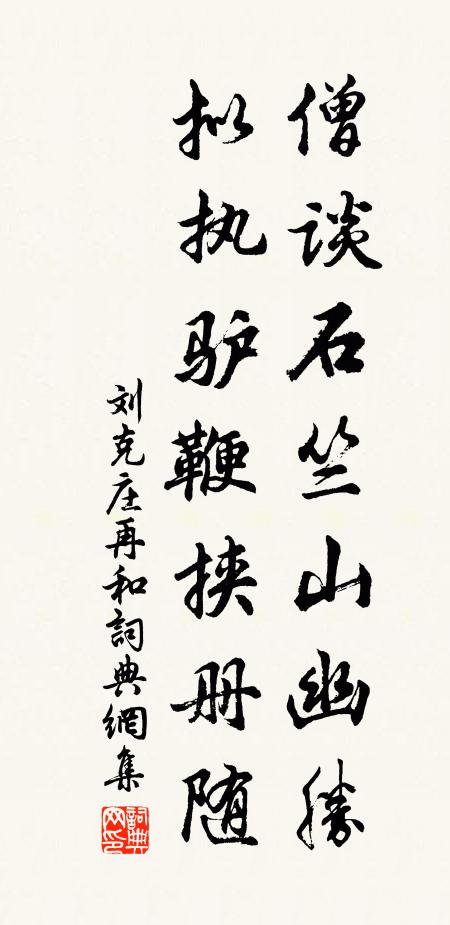 僧谈石竺山幽勝
拟执驴鞭挟册随
刘克庄再和詞典網集
詞典網印